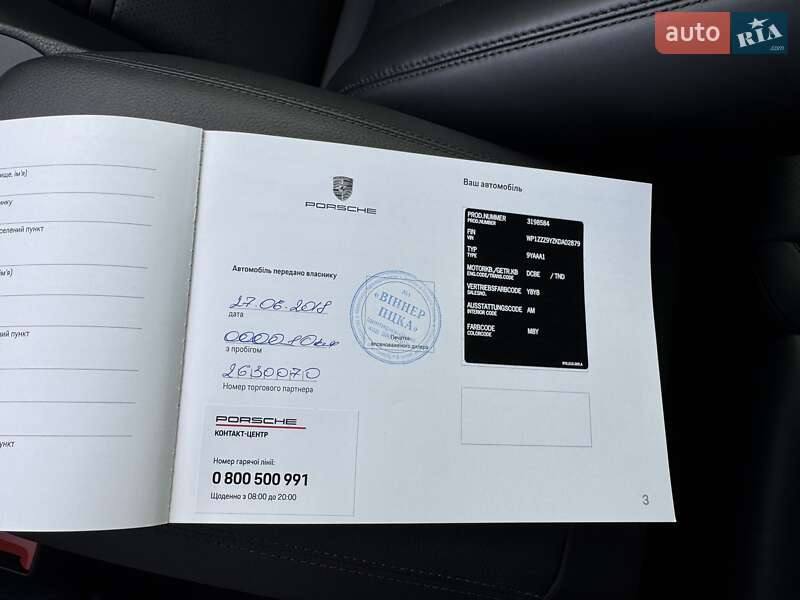 auto RIA.com
ище, ім'я)
инку
селений пункт
ім'я)
ий пункт
нку
ункт
PORSCHE
Автомобіль передано власнику
27.06.2018
дата
000010км
з пробігом
2630070
Номер торгового партнера
«ВІННЕР
ІПІКА»
Печатка
уповноваженого дилера
PORSCHE
КОНТАКТ-ЦЕНТР
Номер гарячої лінії:
0 800 500 991
Щоденно з 08:00 до 20:00
Ваш автомобіль
PROD.NUMMER 3198584
PROD.NUMBER
FIN WP1ZZZ9YZKDA02879
VIN
TYP 9YAAA1
TYPE
MOTORKB./GETR.KB DCBE / THD
ENG.CODE/TRANS.CODE
VERTRIEBSFARBCODE Y8Y8
SALESNO.
AUSSTATTUNGSCODE AM
INTERIOR CODE
FARBCODE M8Y
COLORCODE
3